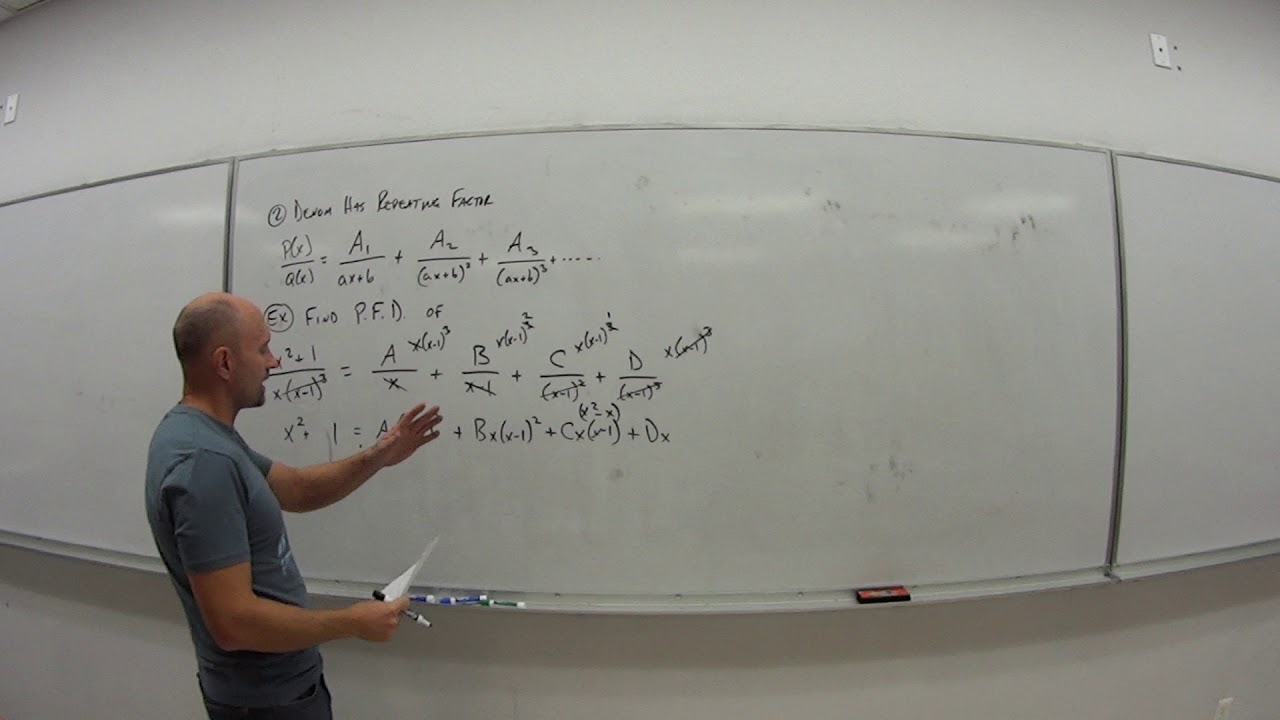 ② DENOM HAS REPEATING FACTOR
P(x)/Q(x) = A₁/(ax+b) + A₂/(ax+b)² + A₃/(ax+b)³ + .....
Ex FIND P.F.D. OF
x²+1/x(x-1)³ = A/x x(x-1)³ + B/x-1 x(x-1)³ 2 + C/(x-1)² x(x-1)³ 1 + D/(x-1)³ x(x-1)³
(x²-x)
x²+ 1 = A + Bx(x-1)² + Cx(x-1) + Dx